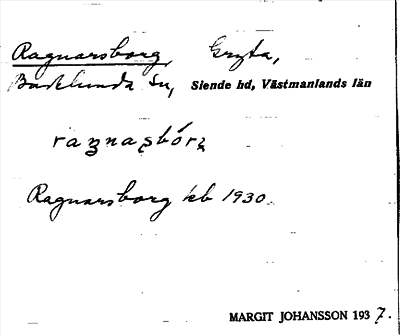 Ragnarsborg, Gryta,
Badelunda sn, Siende hd, Västmanlands län
raꝫnaʂbórꝫ
Ragnarsborg kb 1930.
MARGIT JOHANSSON 1937.